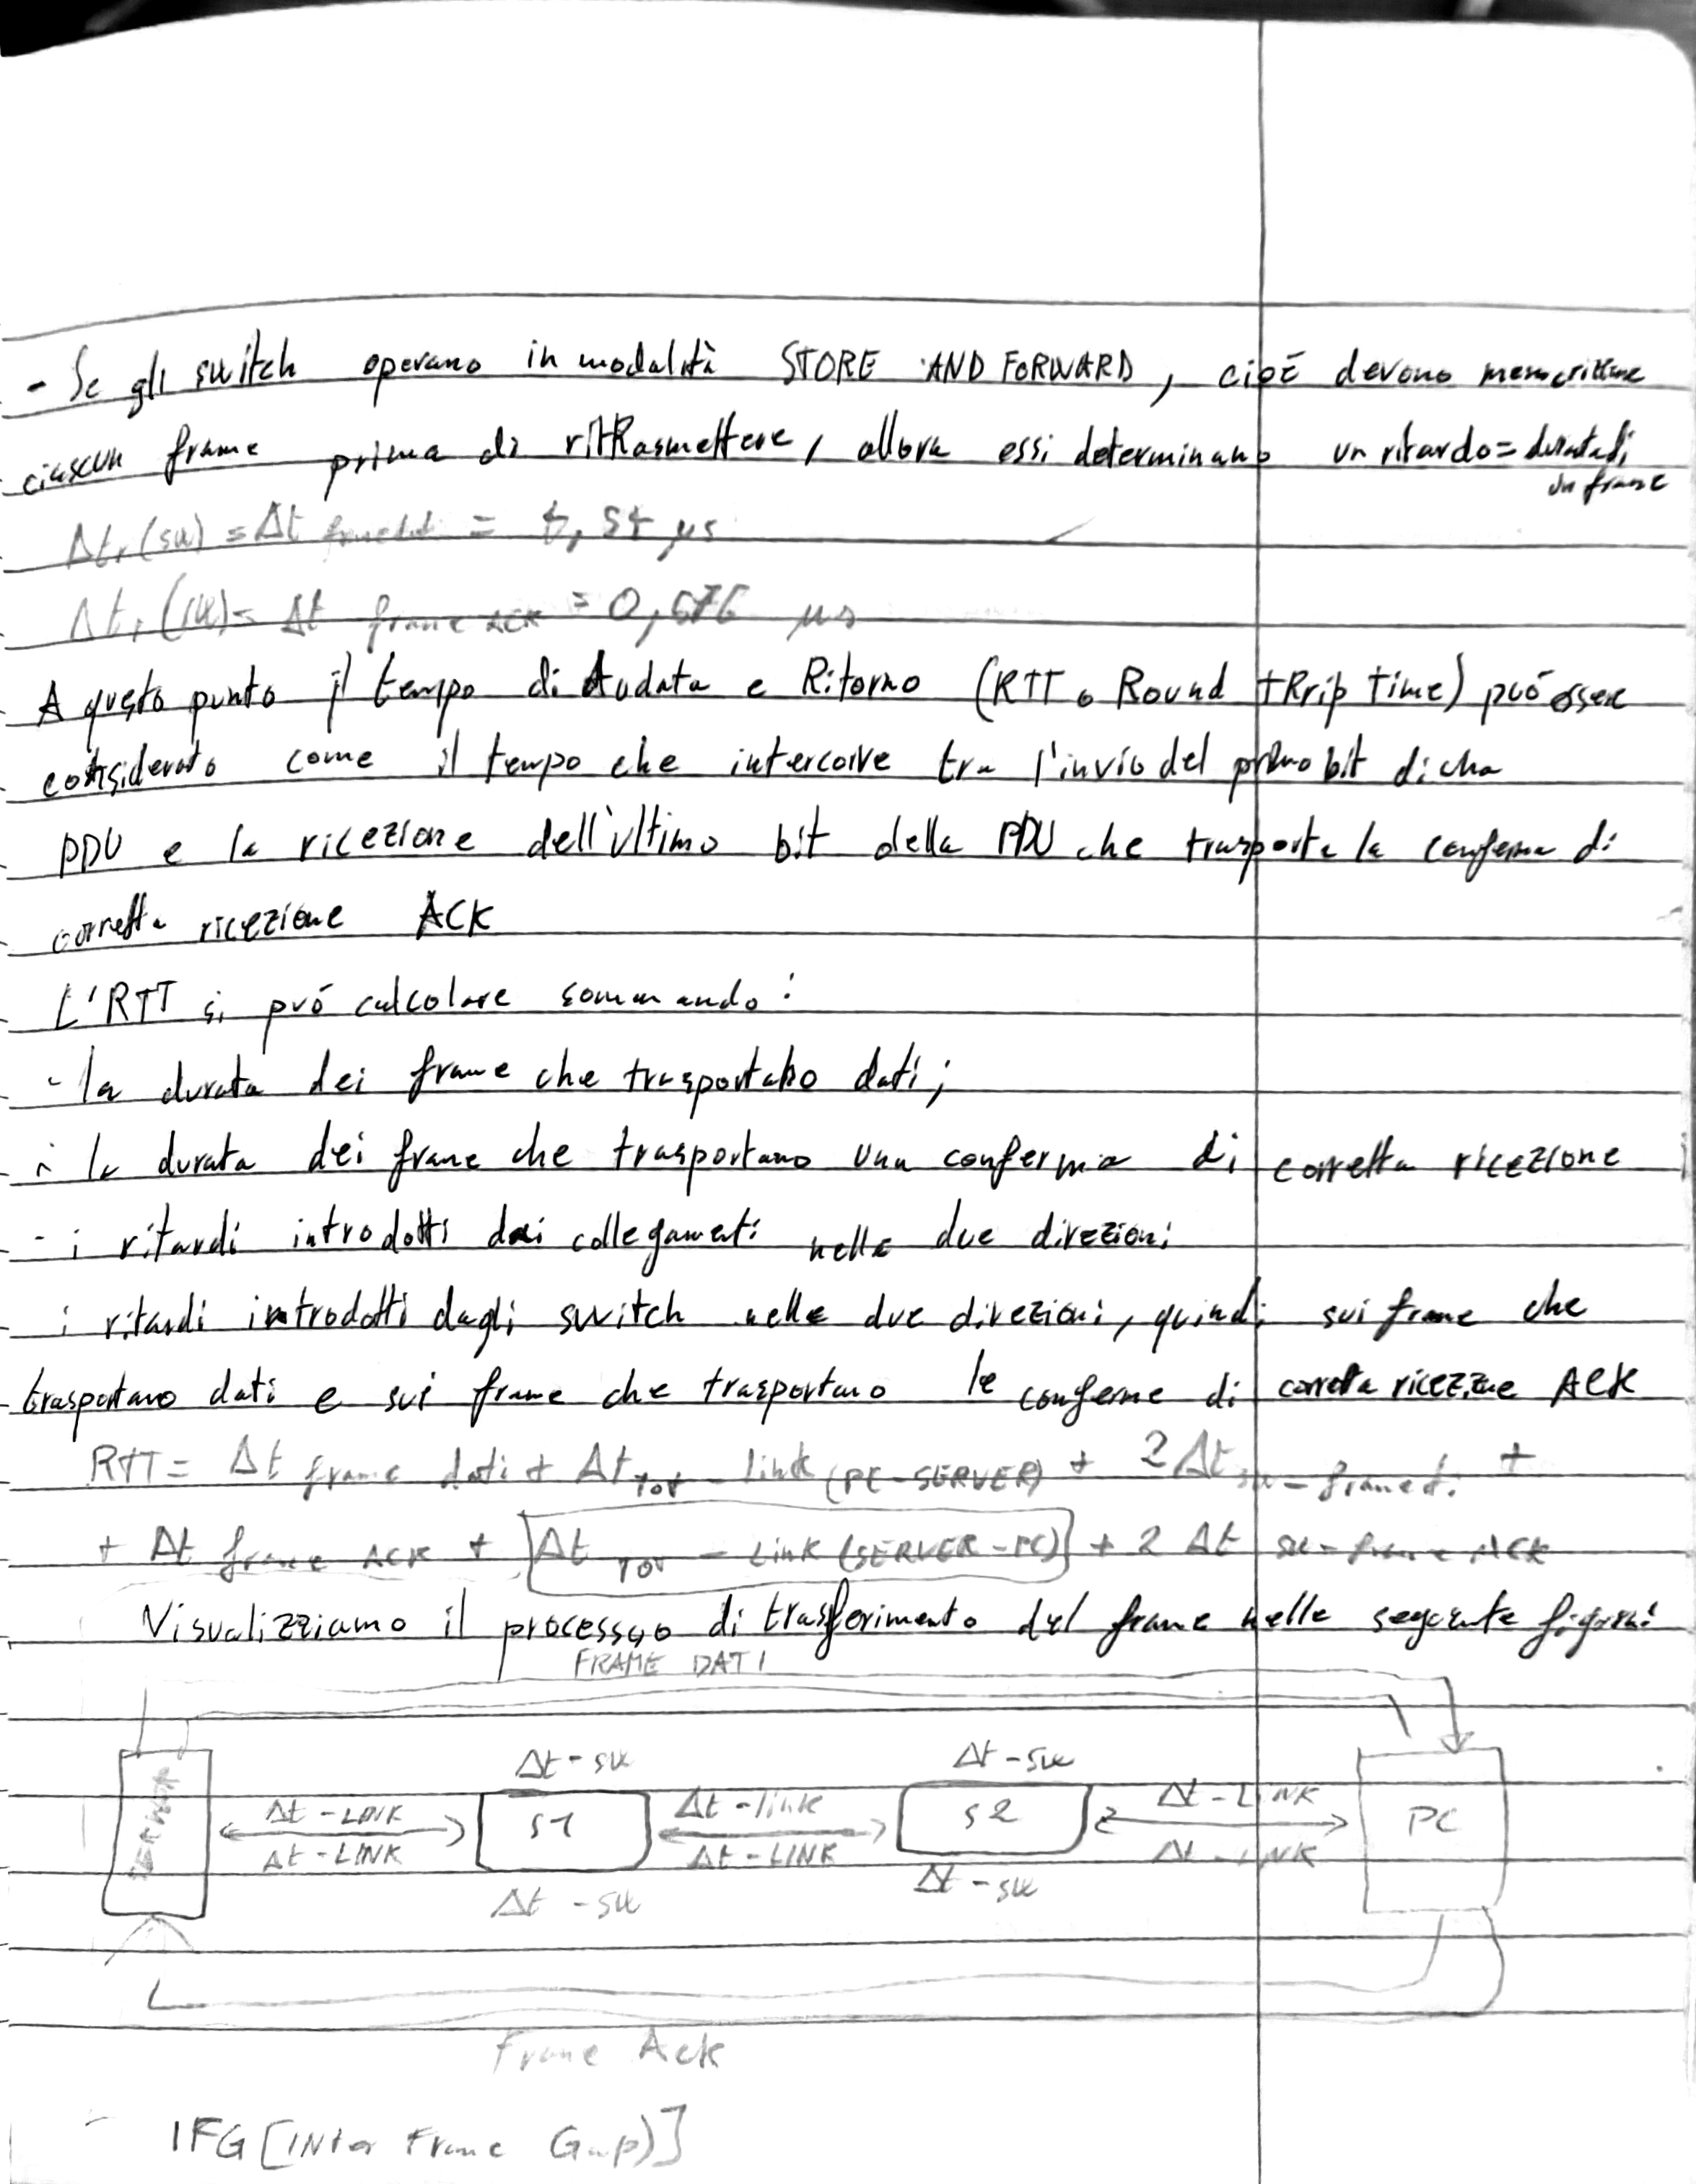 - Se gli switch operano in modalità STORE AND FORWARD, cioè devono memorizzare
ciascun frame prima di ritRasmettere, allora essi determinano un ritardo = durata di
un frame
Δtr (sw) = Δt frame dati = μs
Δtr (sw) = Δt frame ACK = 0,676 μs
A questo punto il tempo di Andata e Ritorno (RTT o Round tRrip time) può essere
considerato come il tempo che intercorre tra l'invio del primo bit di cha
PDU e la ricezione dell'ultimo bit della PDU che trasporta la conferma di
corretta ricezione ACK
L'RTT si può calcolare sommando:
- la durata dei frame che trasportano dati;
- la durata dei frame che trasportano una conferma di corretta ricezione
- i ritardi introdotti dai collegamenti nelle due direzioni
i ritardi introdotti dagli switch nelle due direzioni, quindi sui frame che
trasportano dati e sui frame che trasportano le conferme di corretta ricezione ACK
RTT = Δt frame dati + Δt TOT - link (PC-SERVER) + 2 Δt sw - frame d. +
+ Δt frame ACK + [Δt TOT - Link (SERVER-PC)] + 2 Δt sw - frame ACK
Visualizziamo il processo di trasferimento del frame nelle seguente figura:
FRAME DATI
Δt - sw Δt - sw
SERVER Δt - LINK S1 Δt - link S2 Δt - LINK PC
Δt - LINK Δt - LINK Δt - LINK
Δt - sw Δt - sw
Frame Ack
IFG [INter Frame Gap)]